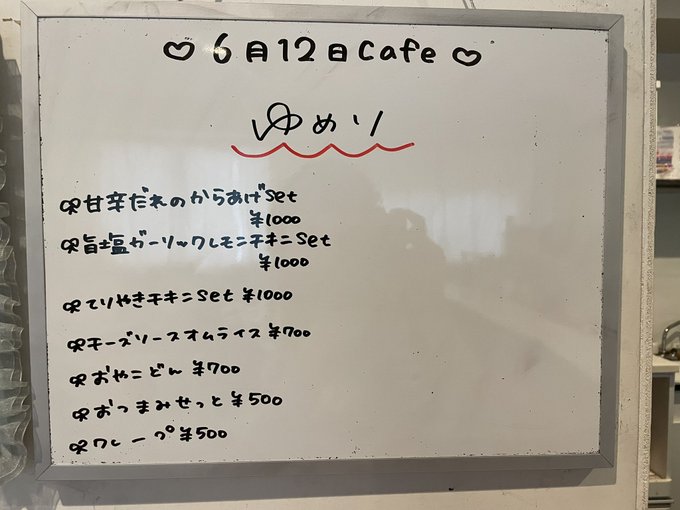 ♡6月12日Cafe♡
ゆめり
甘辛だれのからあげSet
¥1000
旨塩ガーリックレモンチキンSet
¥1000
てりやきチキンSet ¥1000
チーズソースオムライス¥700
おやこどん ¥700
おつまみせっと¥500
クレープ¥500